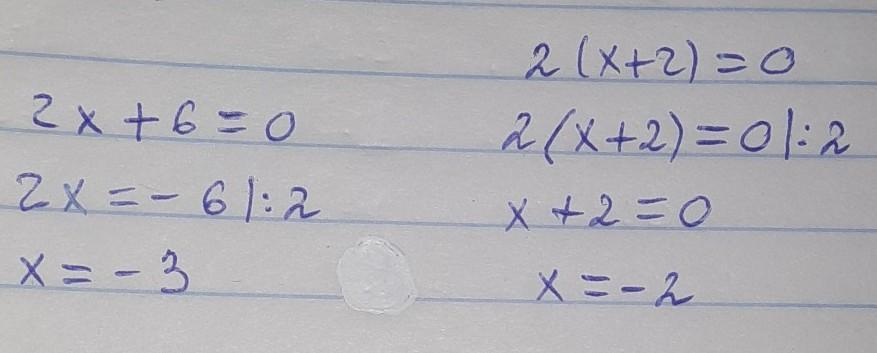 2x+6=0
2x=-6|:2
x=-3
2(x+2)=0
2(x+2)=0|:2
x+2=0
x=-2